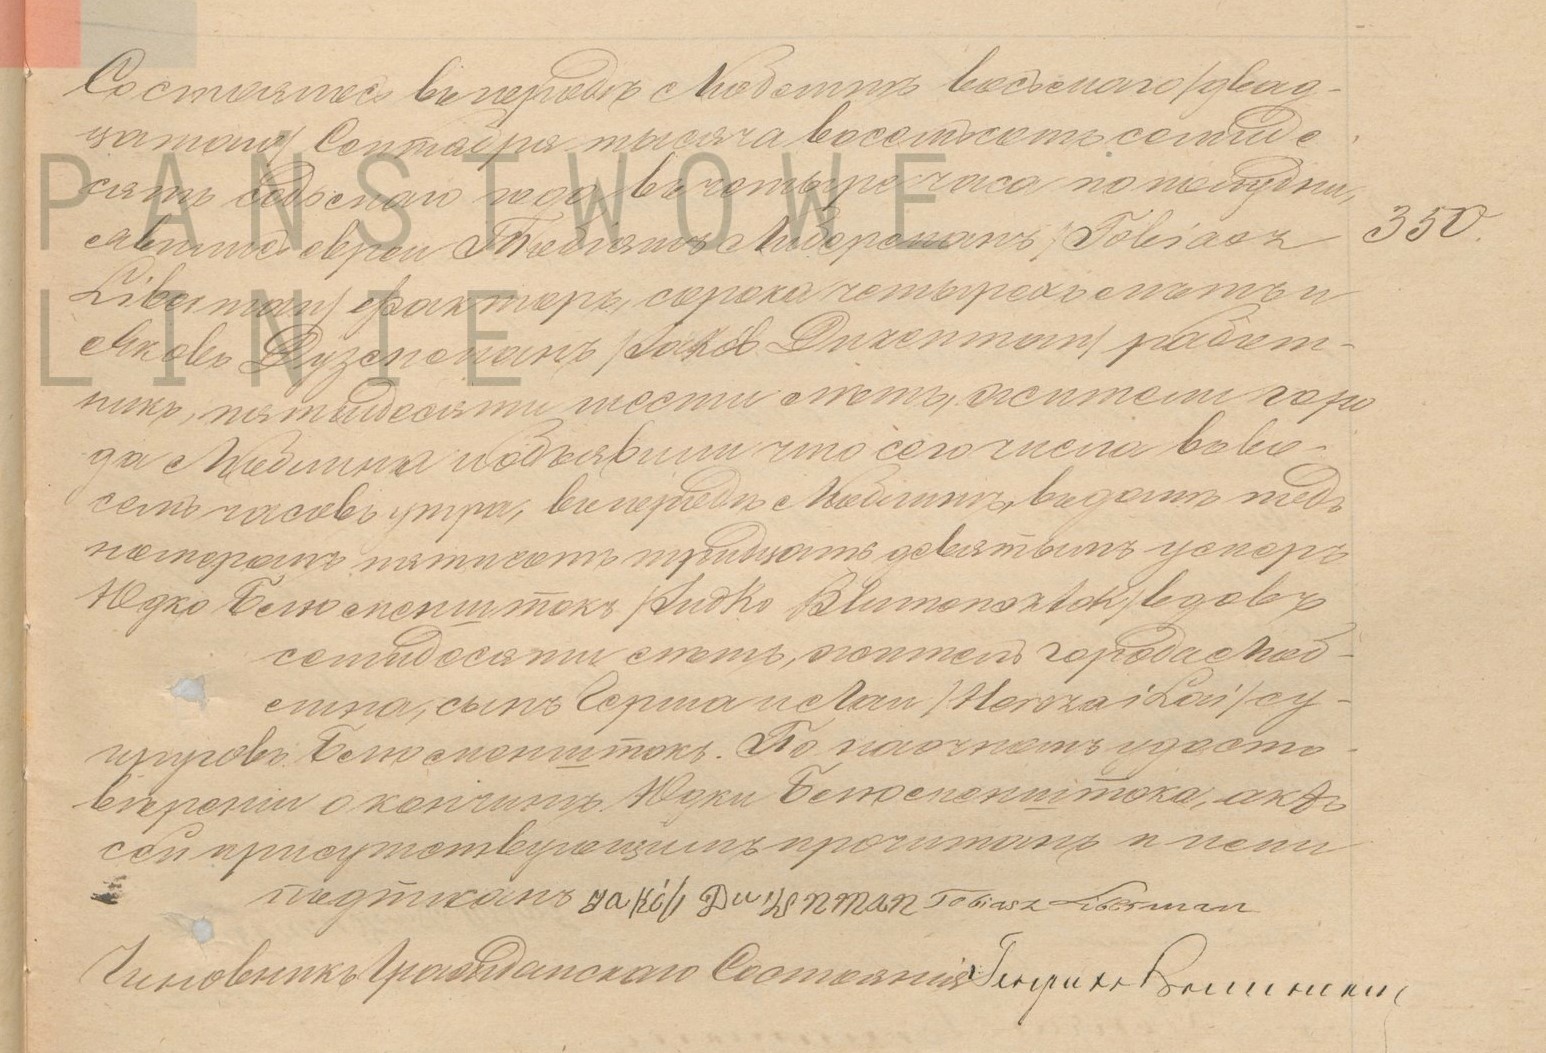 Состоялось въ городѣ Люблинѣ восьмаго /двад-
цатаго/ Сентября тысяча восемьсотъ семьде
сятъ седьмаго года въ четыре часа по полудни,
явились евреи Тобіашъ Либерманъ /Tobiasz
Liberman/ факторъ, сорока четырехъ лѣтъ и
Яковъ Дузенманъ /Jakób Duzenman/ работ-
никъ, пятидесяти шести лѣтъ, жители горо
да Люблина и объявили что сего числа въ во-
семь часовъ утра, въ городѣ Люблинѣ, въ домѣ подъ
номеромъ пятьсотъ тридцать девятымъ умеръ
Юдко Блюменштокъ /Judko Blumensztok/ вдовъ
семидесяти лѣтъ, житель города Люб-
лина, сынъ Герша и Лаи /Hersza i Lai/ су-
пруговъ Блюменштокъ. По наочномъ удосто-
вѣреніи о кончинѣ Юдки Блюменштока, актъ
сей присутствующимъ прочитанъ и ими
подписанъ Jakób Duzenman Tobiasz Liberman
Чиновникъ Гражданскаго Состоянія
350.
PANSTWOWE
LINIE